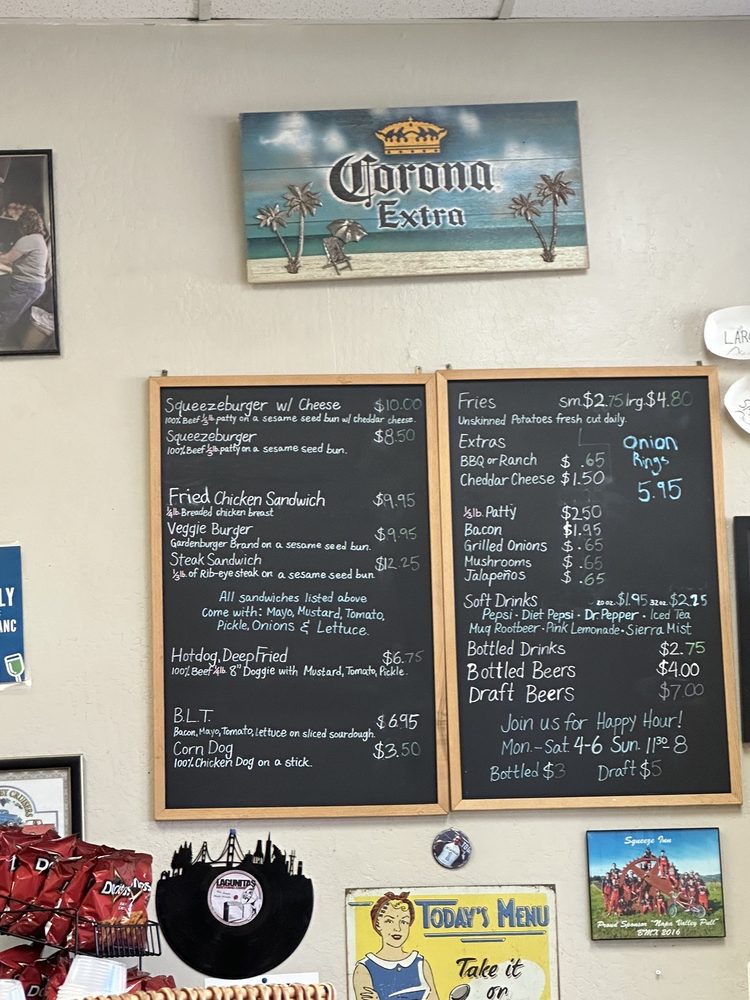 Corona
Extra
LARG
Squeezeburger w/ Cheese $10.00
100% Beef ⅓lb. patty on a sesame seed bun w/ cheddar cheese.
Squeezeburger $8.50
100% Beef ⅓lb. patty on a sesame seed bun.
Fried Chicken Sandwich $9.95
¼lb. Breaded chicken breast
Veggie Burger $9.95
Gardenburger Brand on a sesame seed bun.
Steak Sandwich $12.25
⅓lb. of Rib-eye steak on a sesame seed bun
All sandwiches listed above
come with: Mayo, Mustard, Tomato,
Pickle, Onions & Lettuce.
Hotdog, Deep Fried $6.75
100% Beef ¼lb. 8" Doggie with Mustard, Tomato, Pickle.
B.L.T. $6.95
Bacon, Mayo, Tomato, Lettuce on sliced sourdough.
Corn Dog $3.50
100% Chicken Dog on a stick.
Fries sm.$2.75 lrg.$4.80
Unskinned Potatoes fresh cut daily.
Extras
BBQ or Ranch $ .65
Cheddar Cheese $1.50
Onion
Rings
5.95
⅓lb. Patty $2.50
Bacon $1.95
Grilled Onions $ .65
Mushrooms $ .65
Jalapeños $ .65
Soft Drinks 20 oz. $1.95 32 oz. $2.25
Pepsi • Diet Pepsi • Dr. Pepper • Iced Tea
Mug Rootbeer • Pink Lemonade • Sierra Mist
Bottled Drinks $2.75
Bottled Beers $4.00
Draft Beers $7.00
Join us for Happy Hour!
Mon.-Sat. 4-6 Sun. 11³⁰-8
Bottled $3 Draft $5
LY
ANC
Doritos
LAGUNITAS
TODAY'S MENU
Take it
or
Squeeze Inn
Proud Sponsor "Napa Valley Pull"
BMX 2016